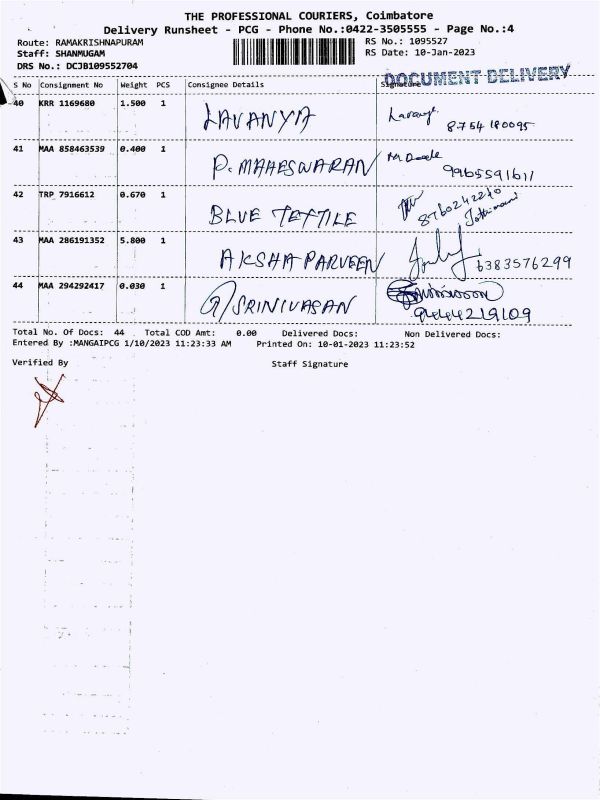 THE PROFESSIONAL COURIERS, Coimbatore
Delivery Runsheet - PCG - Phone No.:0422-3505555 - Page No.:4
Route: RAMAKRISHNAPURAM RS No.: 1095527
Staff: SHANMUGAM RS Date: 10-Jan-2023
DRS No.: DCJB109552704
DOCUMENT DELIVERY
S No Consignment No Weight PCS Consignee Details Signature
40 KRR 1169680 1.500 1 LAVANYA Lavanya
8754180095
41 MAA 858463539 0.400 1 P. MAHESWARAN
9965591611
42 TRP 7916612 0.670 1 BLUE TEFTILE 8760242210
43 MAA 286191352 5.800 1 AKSHA PARVEEN 6383576299
44 MAA 294292417 0.030 1 G SRINIVASAN
9444219109
Total No. Of Docs: 44 Total COD Amt: 0.00 Delivered Docs: Non Delivered Docs:
Entered By :MANGAIPCG 1/10/2023 11:23:33 AM Printed On: 10-01-2023 11:23:52
Verified By Staff Signature